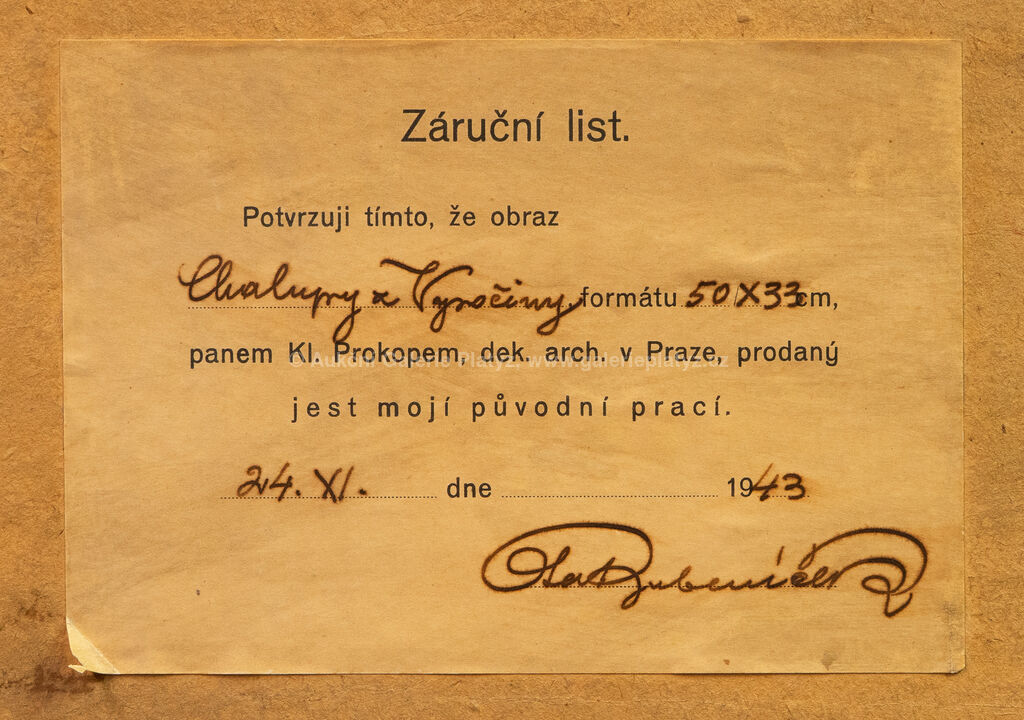 Záruční list.
Potvrzuji tímto, že obraz
Chalupy z Vysočiny formátu 50X33cm,
panem Kl. Prokopem, dek. arch. v Praze, prodaný
© Aukční Galerie Platýz, www.galerieplatyz.cz
jest mojí původní prací.
24. XI. dne 1943
Ota Bubeníček